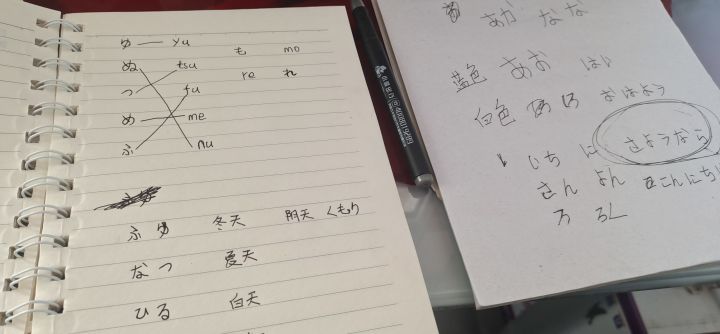 ゆ yu も mo
ぬ tsu re れ
つ fu
め me
ふ nu
ふゆ 冬天 阴天 くもり
なつ 夏天
ひる 白天
あか なな
蓝色 あお はい
白色 おはよう
いち に さようなら
さん よん こんにち
ろく